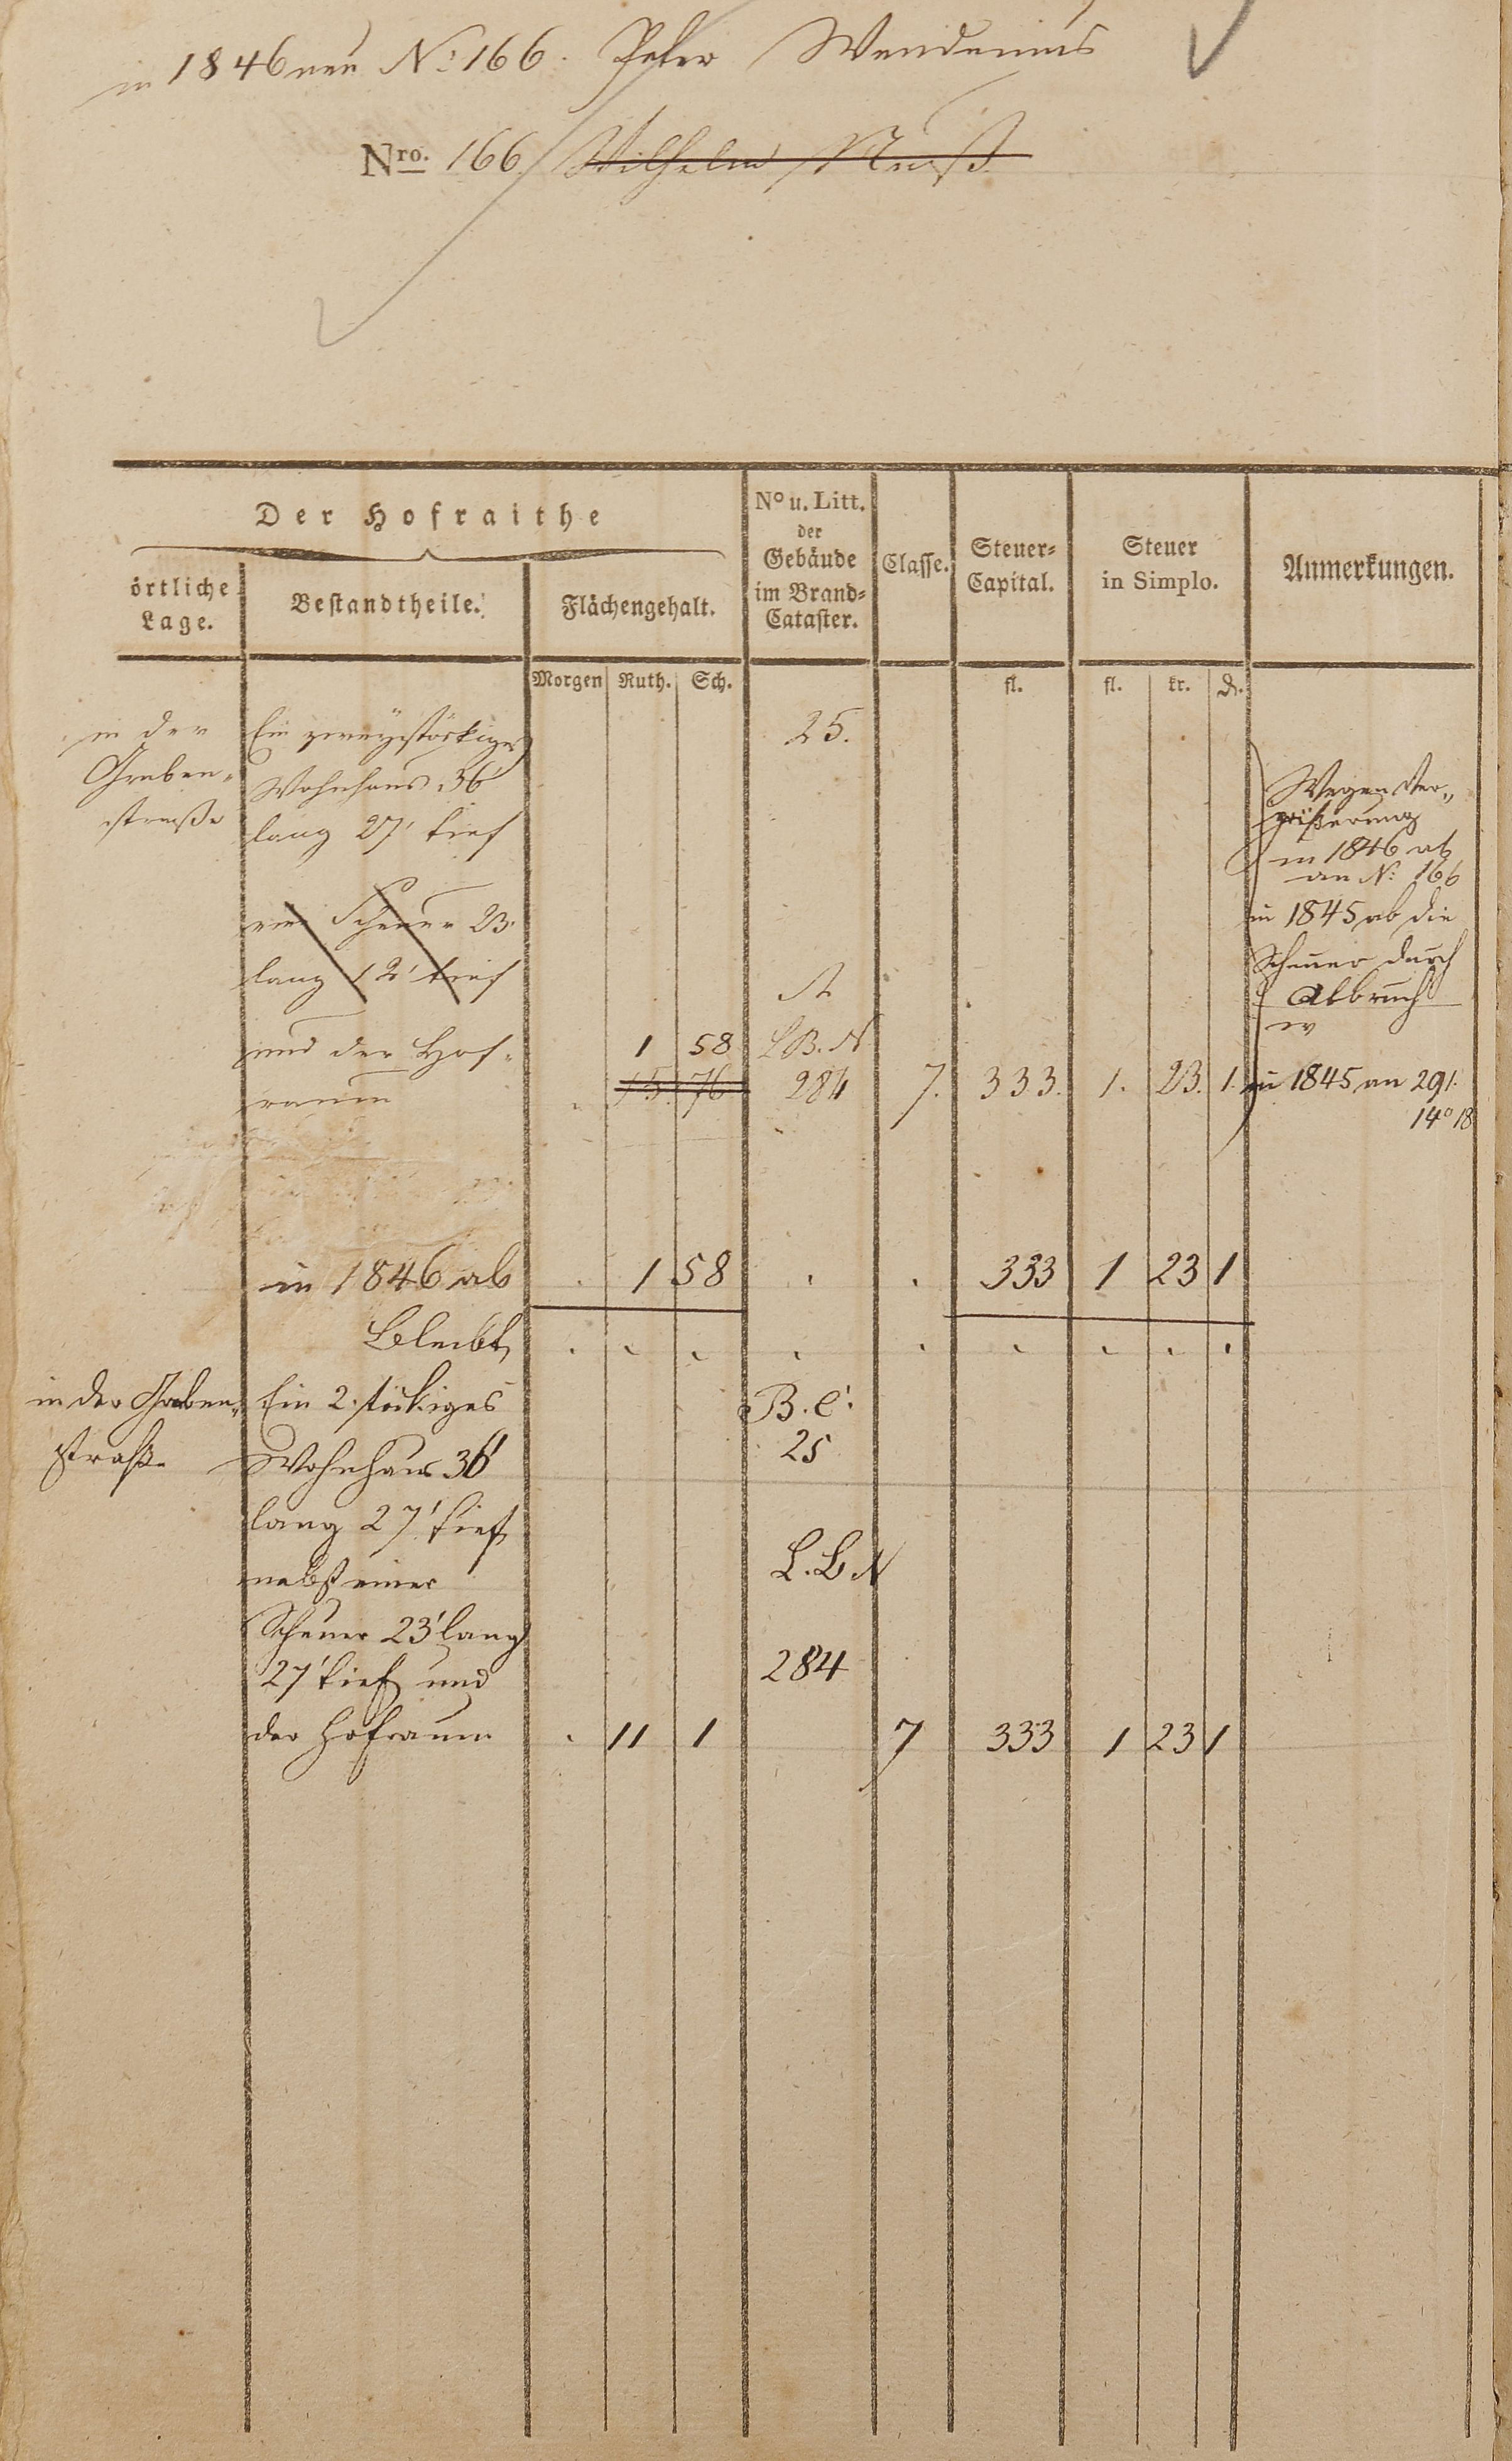 in 1846 neu No 166. Peter Wendenius
Nro. 166. Wilhelm
Der Hofraithe
No u. Litt. der Gebäude im Brand-Cataster.
Classe.
Steuer-Capital.
Steuer in Simplo.
Anmerkungen.
örtliche Lage.
Bestandtheile.
Flächengehalt.
Morgen Ruth. Sch. fl. fl. kr. d.
in der Ein zweystöckiges 25.
Graben- Wohnhaus 36'
strasse lang 27' tief
Wegen Ver-
größerung
in 1846 ab
an No 166
eine Scheuer 23'
lang 12' tief
in 1845 ab die
Scheuer durch
Abbruch
A
und der Hof- 1 58 L.B.N
raum 15. 76 284 7. 333. 1. 23. 1. in 1845 an 291.
14° 18
in 1846 ab . 1 58 . . 333 1 23 1
Bleibt . . . . . . . . .
in der Graben- Ein 2. stöckiges B.C.
straße Wohnhaus 36' 25
lang 27' tief
nebst einer L.B.N
Scheuer 23' lang
27' tief und 284
der Hofraum . 11 1 7 333 1 23 1